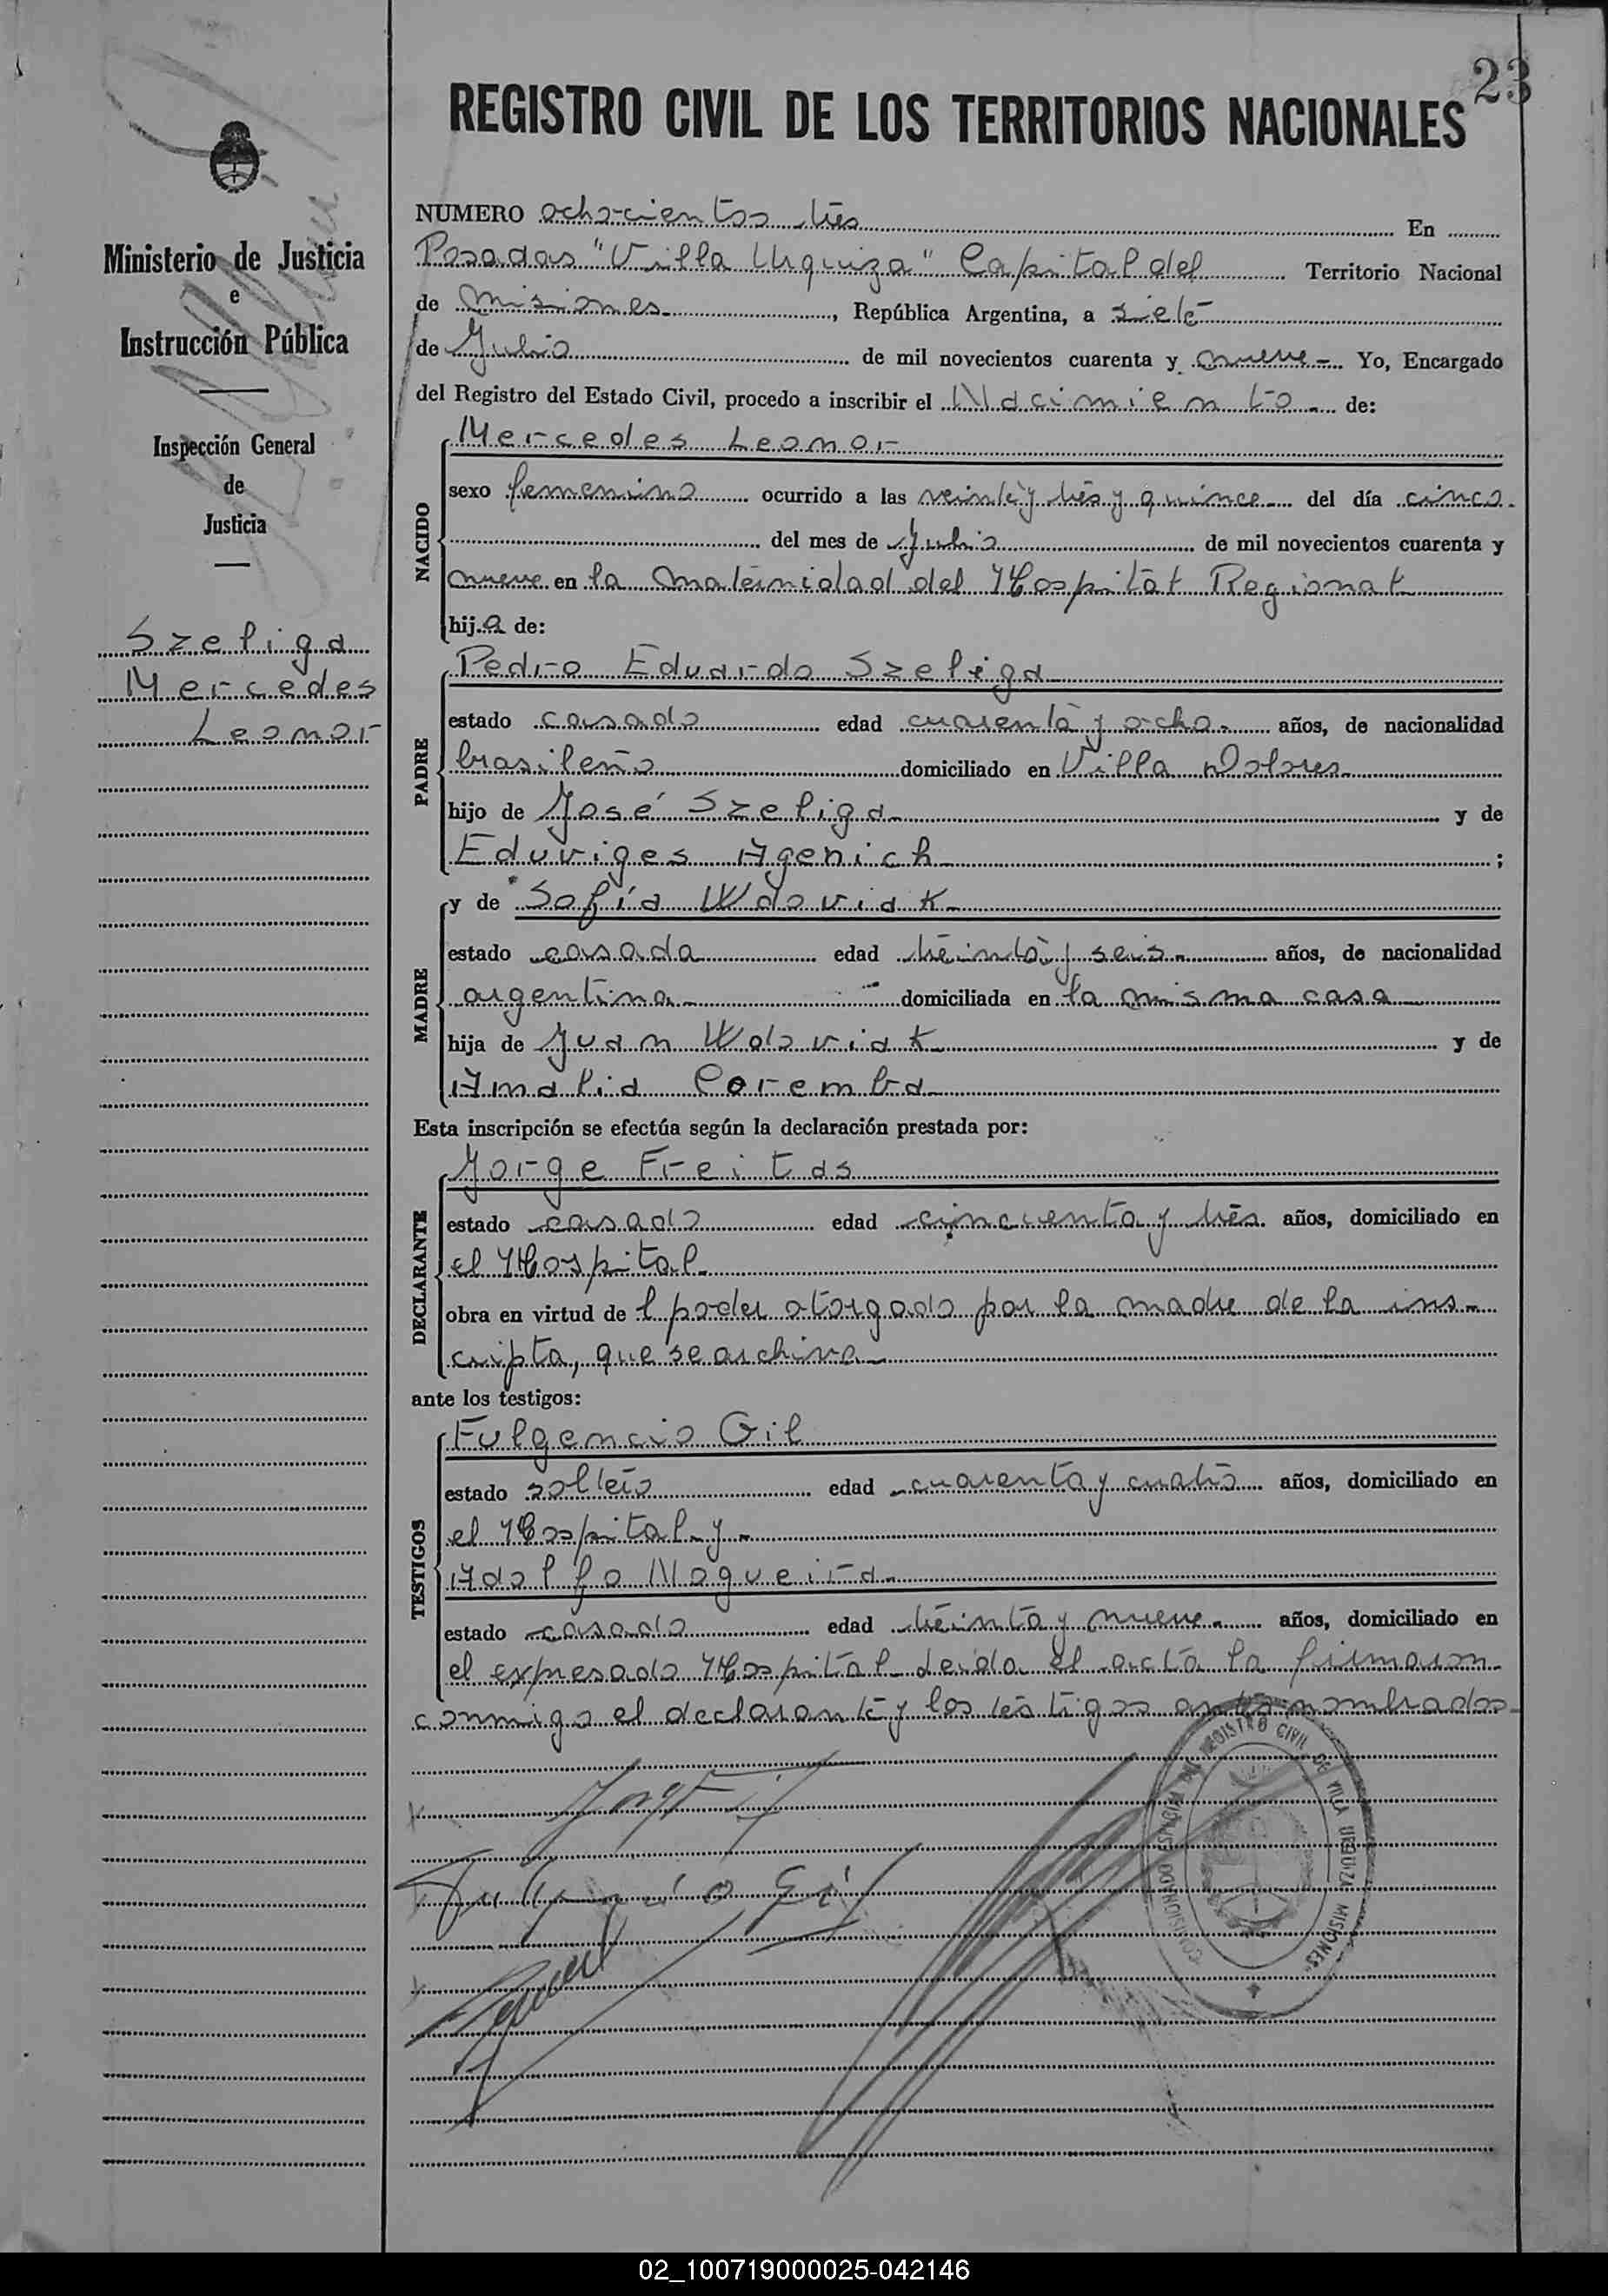 23
REGISTRO CIVIL DE LOS TERRITORIOS NACIONALES
Ministerio de Justicia
e
Instrucción Pública
Inspección General
de
Justicia
Szeliga
Mercedes
Leonor
NUMERO ochocientos tres En
Posadas "Villa Urquiza" Capital del Territorio Nacional
de Misiones, República Argentina, a siete
de Julio de mil novecientos cuarenta y nueve Yo, Encargado
del Registro del Estado Civil, procedo a inscribir el Nacimiento de:
NACIDO
Mercedes Leonor
sexo femenino ocurrido a las veinte y tres y quince del día cinco
del mes de Julio de mil novecientos cuarenta y
nueve en la maternidad del Hospital Regional
hija de:
PADRE
Pedro Eduardo Szeliga
estado casado edad cuarenta y ocho años, de nacionalidad
brasileño domiciliado en Villa Dolores
hijo de José Szeliga y de
Eduviges Agenich ;
MADRE
y de Sofía Wdoviak
estado casada edad treinta y seis años, de nacionalidad
argentina domiciliada en la misma casa
hija de Juan Wdoviak y de
Amalia Coremba
Esta inscripción se efectúa según la declaración prestada por:
DECLARANTE
Jorge Freitas
estado casado edad cincuenta y tres años, domiciliado en
el Hospital
obra en virtud del poder otorgado por la madre de la ins-
cripta, que se archiva
ante los testigos:
TESTIGOS
Fulgencio Gil
estado soltero edad cuarenta y cuatro años, domiciliado en
el Hospital y
Adolfo Nogueira
estado casado edad treinta y nueve años, domiciliado en
el expresado Hospital Leida el acta la firmaron
conmigo el declarante y los testigos antes nombrados
Fulgencio Gil
COMISIONADO ESPECIAL DEL REGISTRO CIVIL DE VILLA URQUIZA MISIONES
02_100719000025-042146